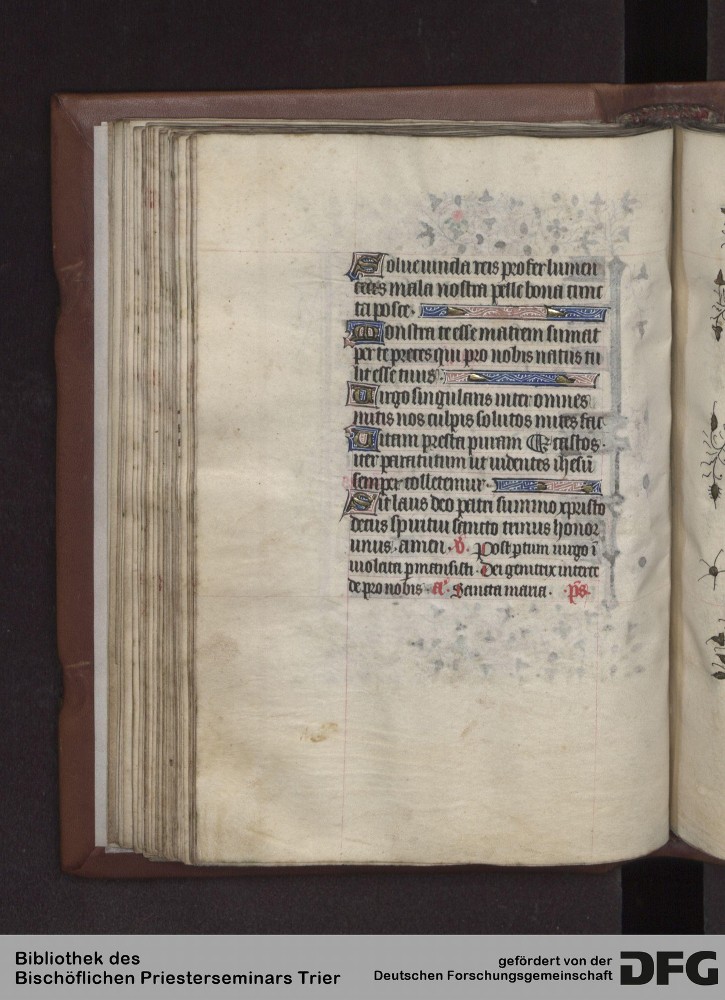 Solue uincla reis profer lumen
cecis mala nostra pelle bona cunc
ta posce.
Monstra te esse matrem sumat
per te preces qui pro nobis natus tu
lit esse tuus.
Uirgo singularis inter omnes
mitis nos culpis solutos mites fac
Uitam presta puram et castos.
iter para tutum ut uidentes ihesū
semper colletemur.
Sit laus deo patri summo xpristo
decus spiritui sancto trinus honor
unus. amen. v̄. Post ptum uirgo ī
uiolata pmansisti. Dei genitrix interce
de pro nobis. a͞. Sancta maria. p̄s.
Bibliothek des
Bischöflichen Priesterseminars Trier
gefördert von der
Deutschen Forschungsgemeinschaft
DFG